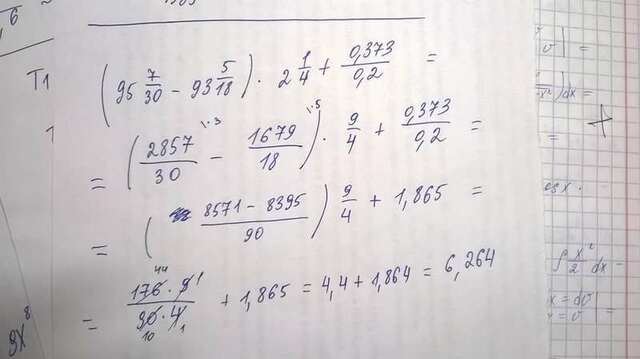 6
T1
(95 7/30 - 93 5/18) · 2 1/4 + 0,373/0,2 =
= (2857/30 \·3 - 1679/18 \·5) · 9/4 + 0,373/0,2 =
= (8571 - 8395/90) 9/4 + 1,865 =
= 176 · 9/90 · 4 + 1,865 = 4,4 + 1,864 = 6,264
44 1
10 1
9x⁸
∫ x²/2 dx -